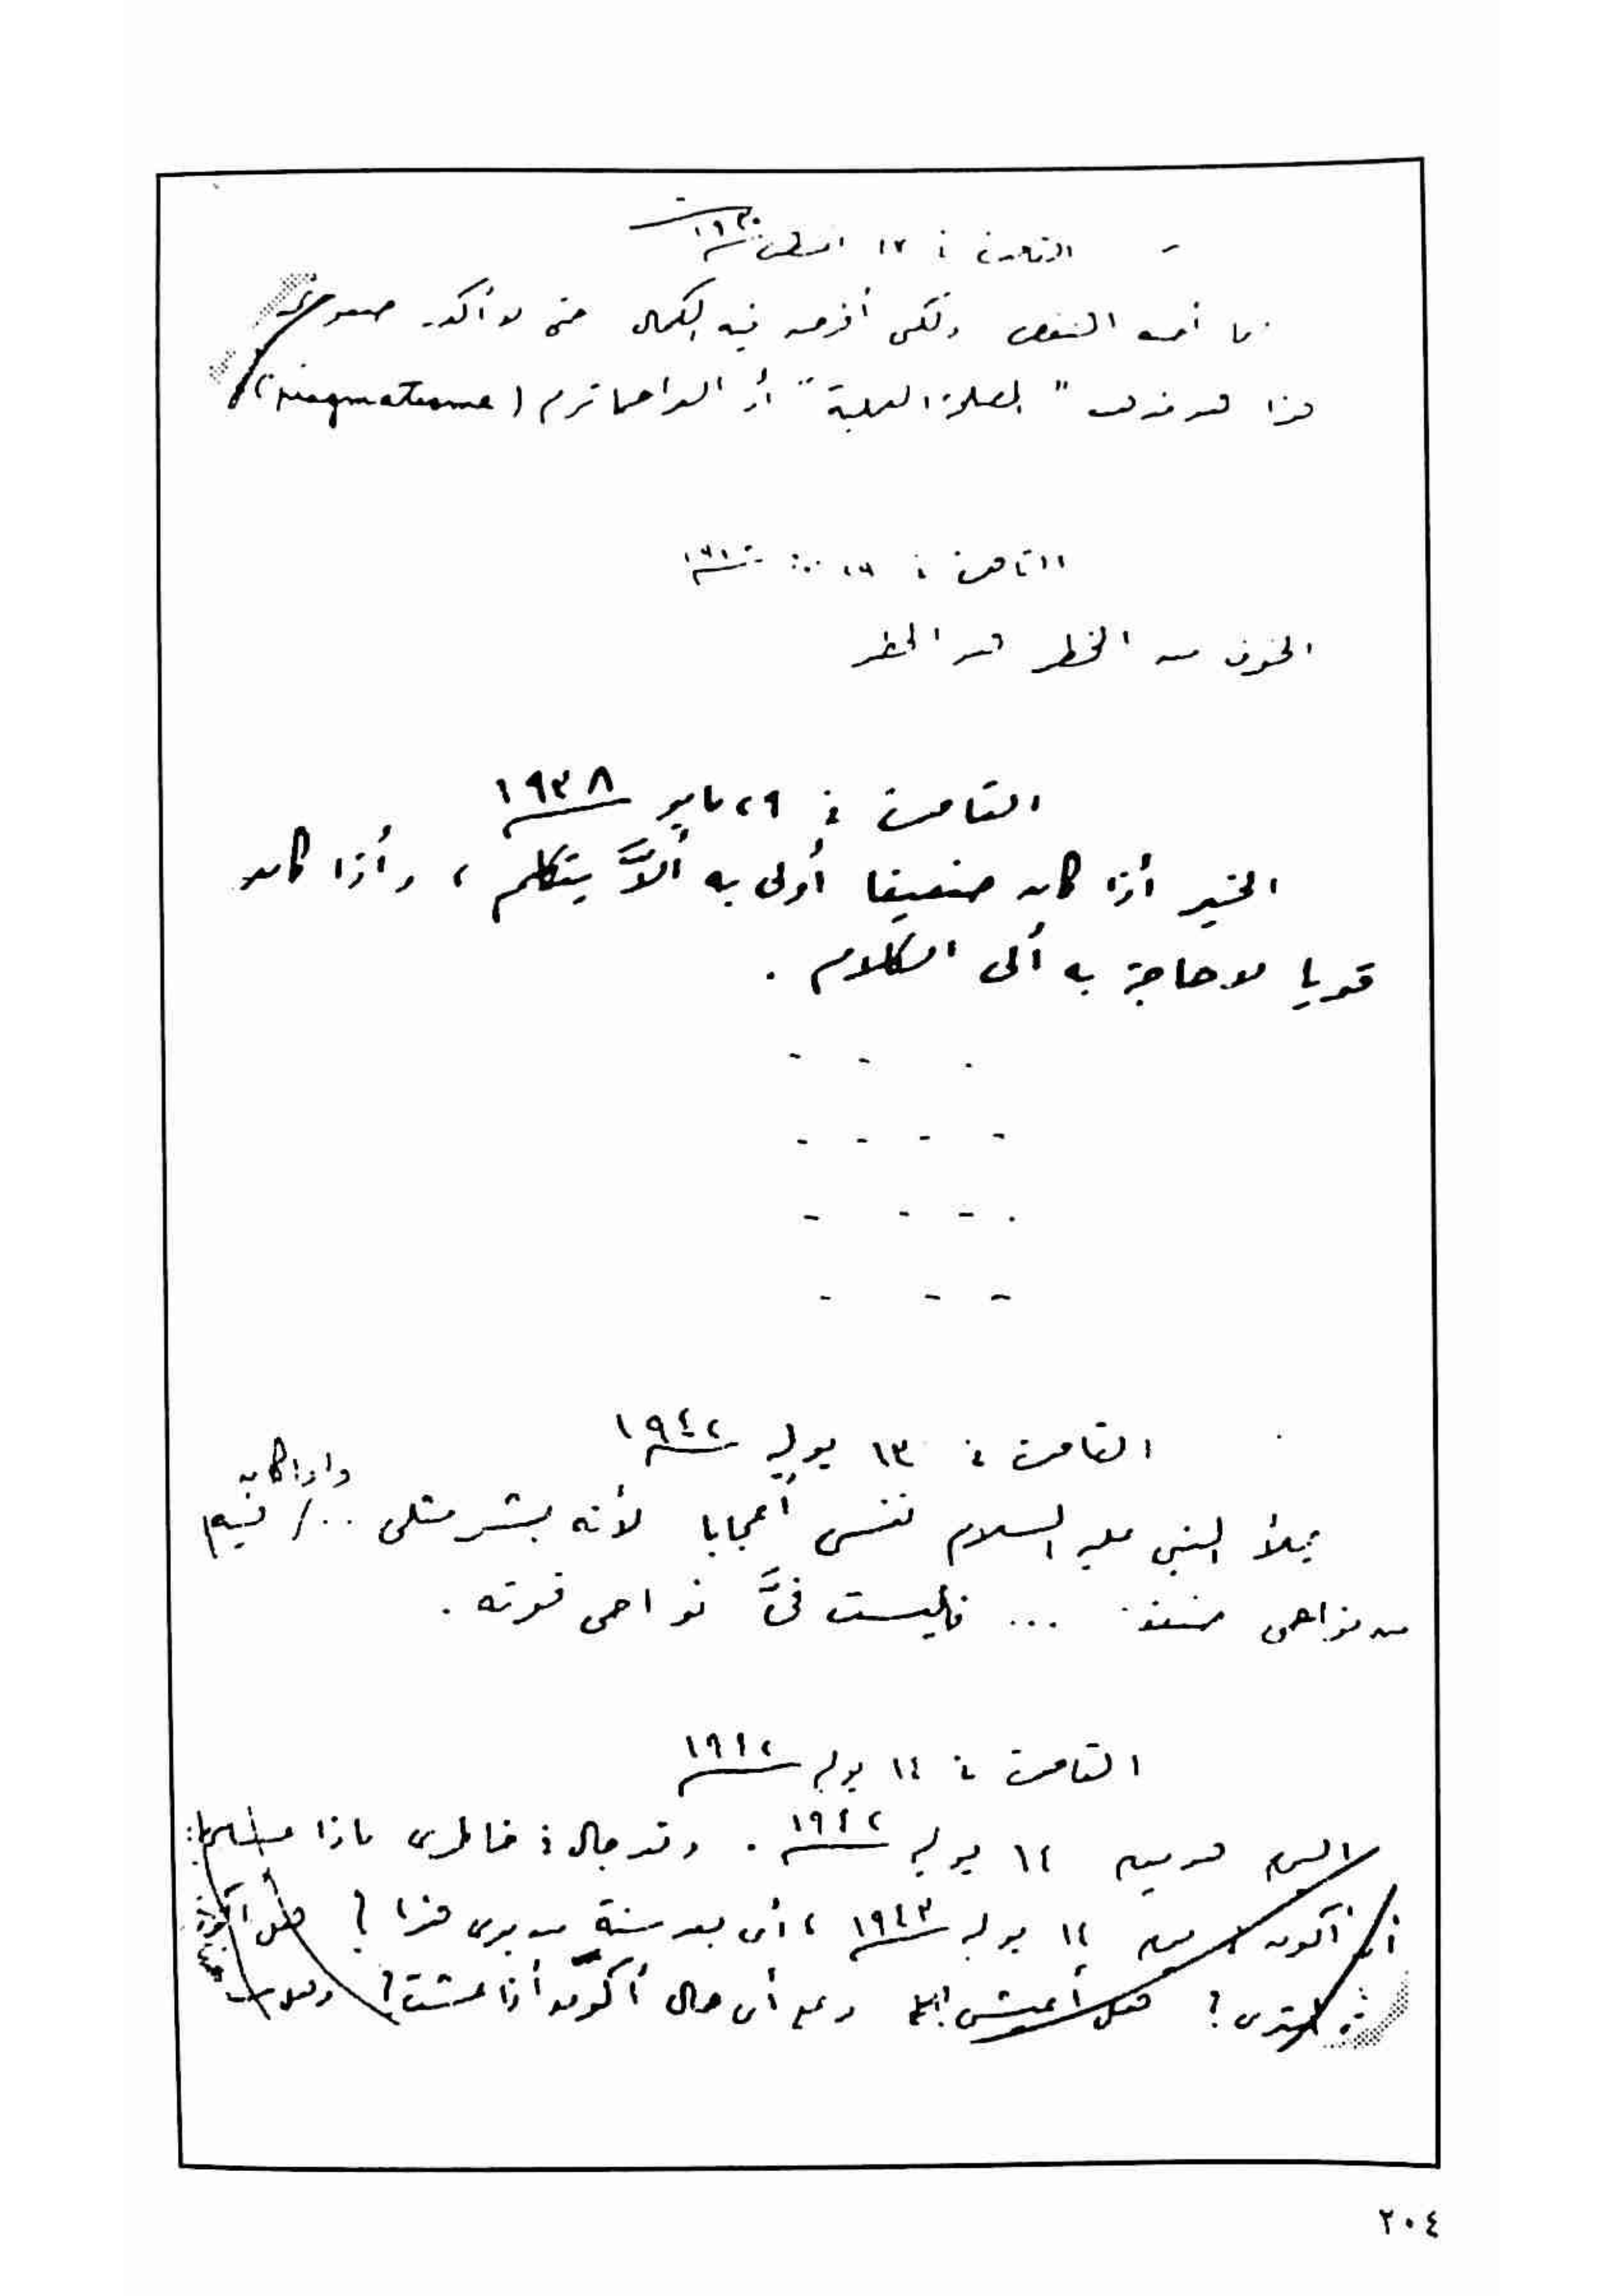 القاهرة في ١٧ أغسطس
أحس النقص ولكني أفرض فيه الكمال حتى لا أكد
هذا هو مذهب "المصلحة العملية" أو البراجماتزم (pragmatisme)
القاهرة في
الخوف من الخطر هو الخطر
القاهرة في ٢٩ مايو ١٩٣٨
الخير أذا كان ضعيفا أولى به ألاَّ يتكلم ، وأذا كان
قويا لا حاجة به ألى الكلام .
القاهرة في ١٣ يوليه ١٩٤٢
واذا كان
يملأ النبي عليه السلام نفسي أعجابا لأنه بشر مثلي ... / فيه
من نواحي ضعفي ... فليست فيَّ نواحي قوته .
القاهرة في ١٤ يوليه ١٩٤٢
اليوم هو يوم ١٤ يوليه ١٩٤٢ . وقد جال في خاطري ماذا عسى
أن أكون يوم ١٤ يوليه ١٩٤٣ ، أى بعد سنة من يومى هذا ؟ هل أكون
؟ هل أعيش وعلى أى حال أكون أذا عشت ؟ وهل
٢٠٤